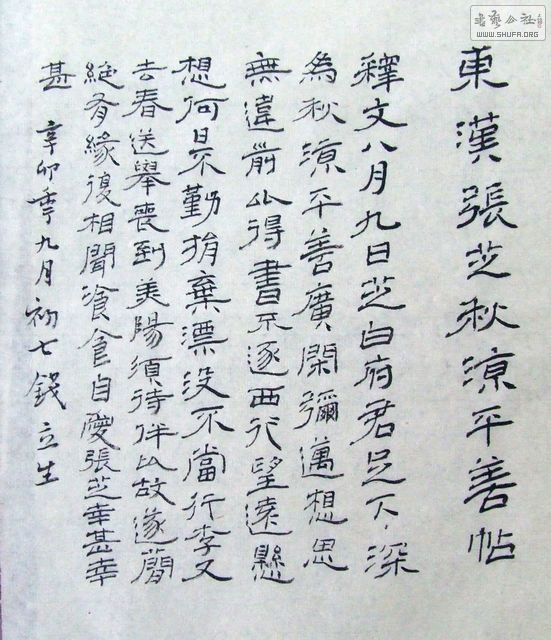 書藝公社
WWW.SHUFA.ORG
東漢張芝秋涼平善帖
釋文八月九日芝白府君足下深
為秋涼平善廣閑彌邁想思
無違前比得書不逐西行望遠懸
想何日不勤捐棄漂没不當行李又
去春送舉喪到美陽須待伴比故遂簡
絶有緣復相聞飡食自愛張芝幸甚幸
甚 辛卯季九月初七錢立生